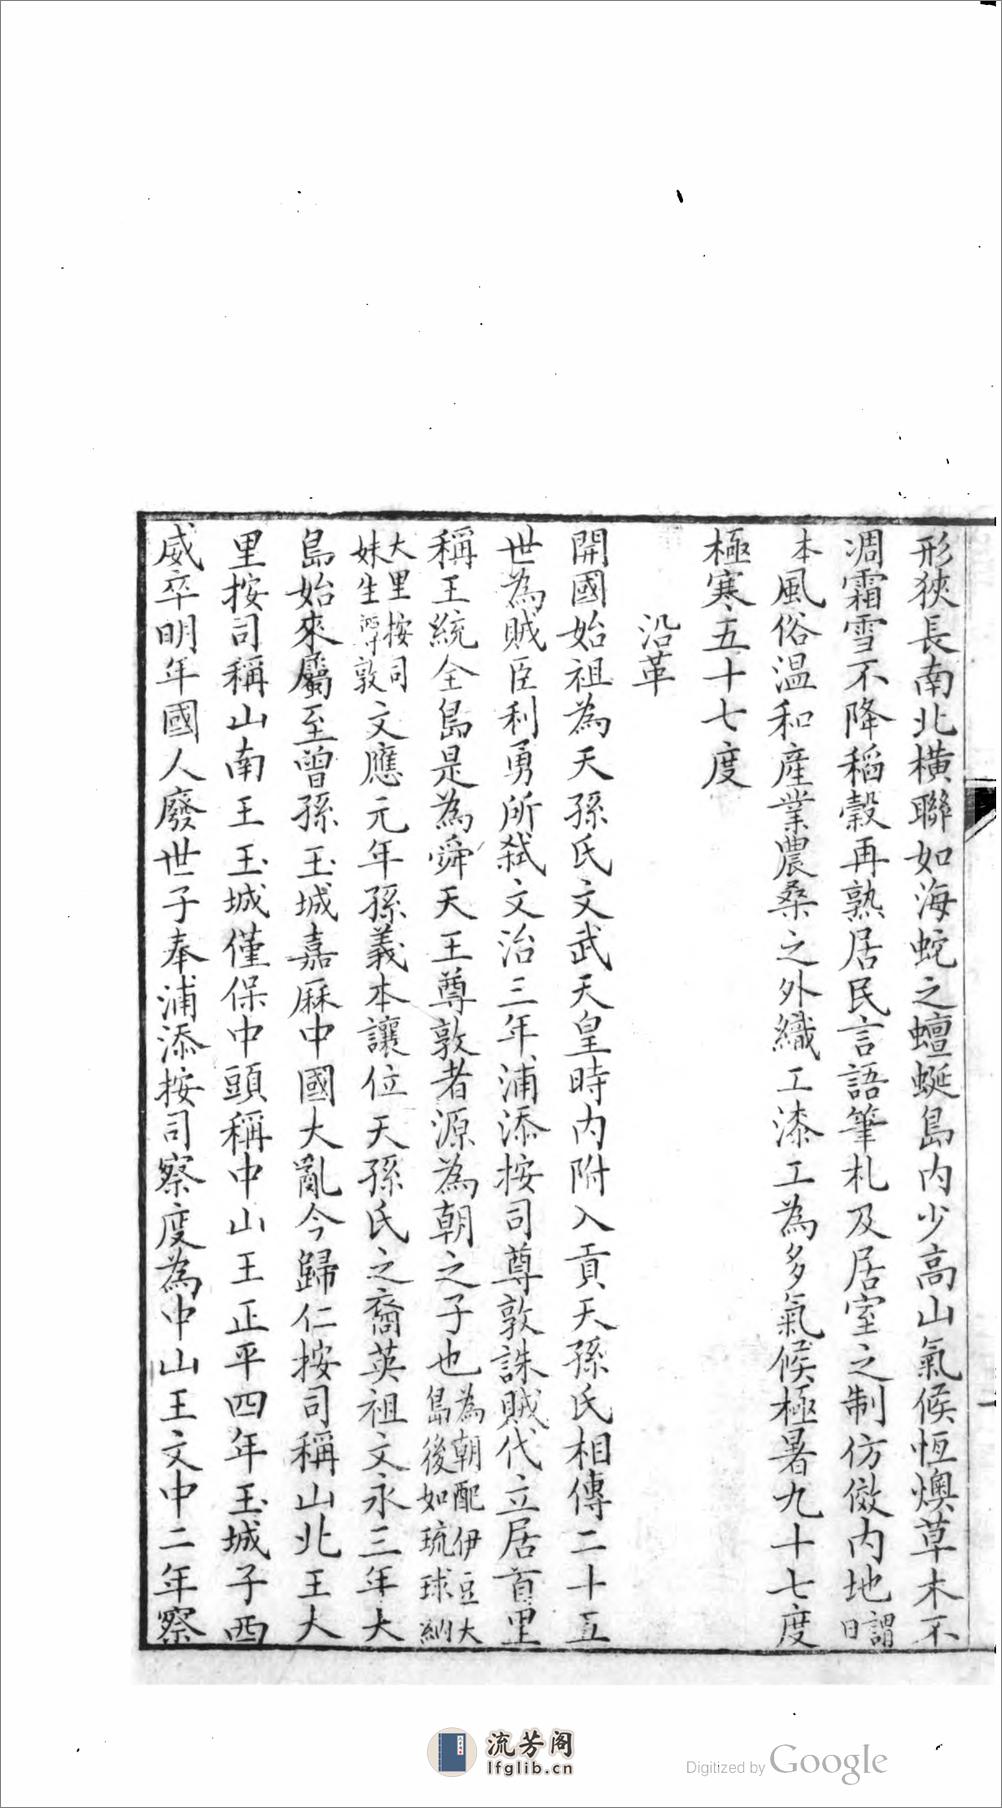 形狹長南北橫聯如海蛇之蟺蜒島内少高山氣候恆燠草木不
凋霜雪不降稻穀再熟居民言語筆札及居室之制仿傚内地謂日
本風俗温和產業農桑之外織工漆工為多氣候極暑九十七度
極寒五十七度
沿革
開國始祖為天孫氏文武天皇時内附入貢天孫氏相傳二十五
世為賊臣利勇所弒文治三年浦添按司尊敦誅賊代立居首里
稱王統全島是為舜天王尊敦者源為朝之子也為朝配伊豆大島後如琉球納
大里按司妹生尊敦文應元年孫義本讓位天孫氏之裔英祖文永三年大
島始來屬至曾孫玉城嘉麻中國大亂今歸仁按司稱山北王大
里按司稱山南王玉城僅保中頭稱中山王正平四年玉城子西
威卒明年國人廢世子奉浦添按司察度為中山王文中二年察
流芳阁
lfglib.cn
Digitized by Google